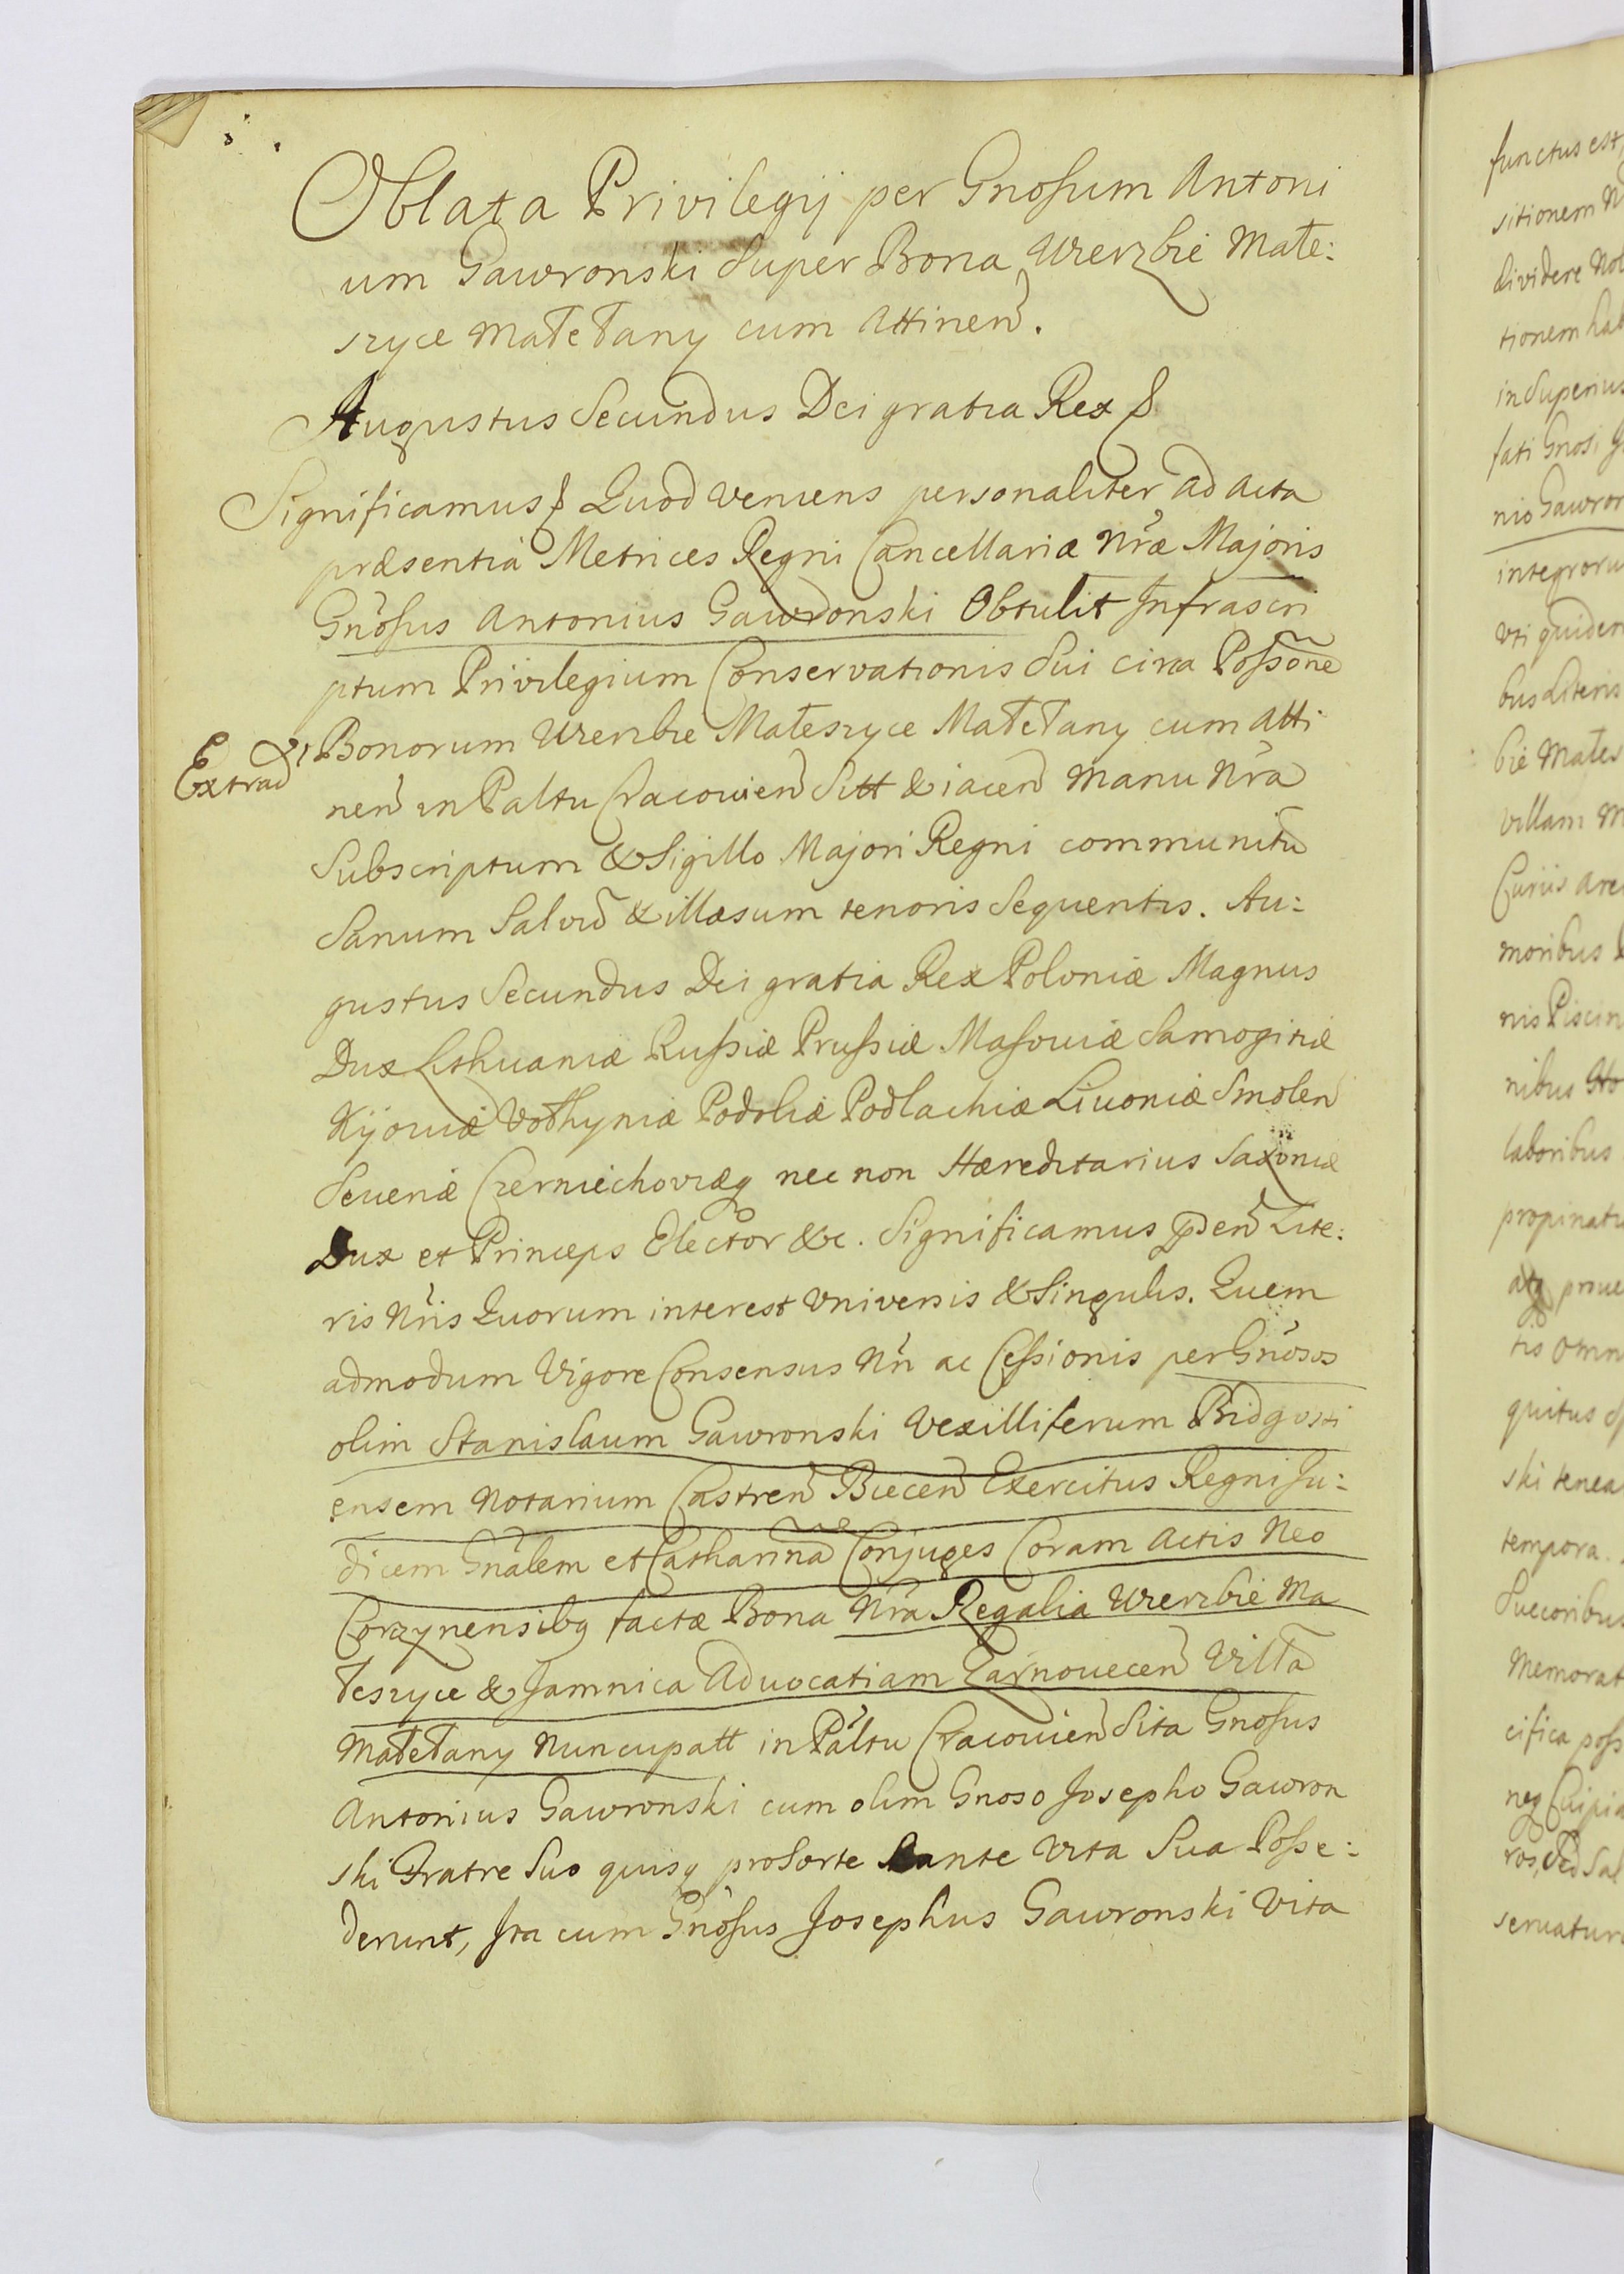 Oblata Privilegij per Gnosum Antoni
um Gawronski Super Bona Wierzbie Małe:
szyce Małełany cum Attinen̄.
Augustus Secundus Dei gratia Rex &
Significamus & Quod veniens personaliter ad Acta
præsentia Metrices Regni Cancellariæ Nræ Majoris
Gnosus Antonius Gawronski Obtulit Infrascri
ptum Privilegium Conservationis Sui circa Possōne
Bonorum Wierzbie Małeszyce Małełany cum Atti
Extrad
nen̄ in Paltu Cracovien̄ Sitt & iacen̄ Manu Nra
Subscriptum & Sigillo Majori Regni communitū
Sanum Salvū & illæsum tenoris Sequentis. Au:
gustus Secundus Dei gratia Rex Poloniæ Magnus
Dux Lithuaniæ Russiæ Prussiæ Masoviæ Samogitiæ
Kijoviæ Vołhyniæ Podoliæ Podlachiæ Livoniæ Smolen̄
Severiæ Czerniechoviæq nec non Hæreditarius Saxoniæ
Dux et Princeps Elector &c. Significamus pden̄ Lite:
ris Nris Quorum interest Universis & Singulis. Quem
admodum Vigore Consensus Nri ac Cessionis per Gnosos
olim Stanislaum Gawronski Vexilliferum Bidgosti
ensem Notarium Castren̄ Biecen̄ Exercitus Regni Ju:
dicem Gnalem et Catharina Conjuges Coram Actis Neo
Corzynensibq factæ Bona Nra Regalia Wierzbie Ma
łeszyce & Jamnica Advocatiam Tarnovecen̄ Villa
Małełany Nuncupatt in Paltu Cracovien̄ Sita Gnosus
Antonius Gawronski cum olim Gnoso Josepho Gawron
ski Fratre Suo quisq pro Sorte Vita Sua Posse:
derunt, Ita cum Gnosus Josephus Gawronski Vita
functus est,
sitionem N
dividere No
tionem hab
in Superius
fati Gnosi
nio Gawron
integroru
Uti quidem
bus Literis
bie Małes
villam M
Curiis are
moribus
nis Piscin
nibus
laboribus
propinati
atq prove
tis omn
quitus
ski tenea
tempora.
Succoribus
Memorat
cifica poss
neq Cuipia
ros, Sed Sal
servatur